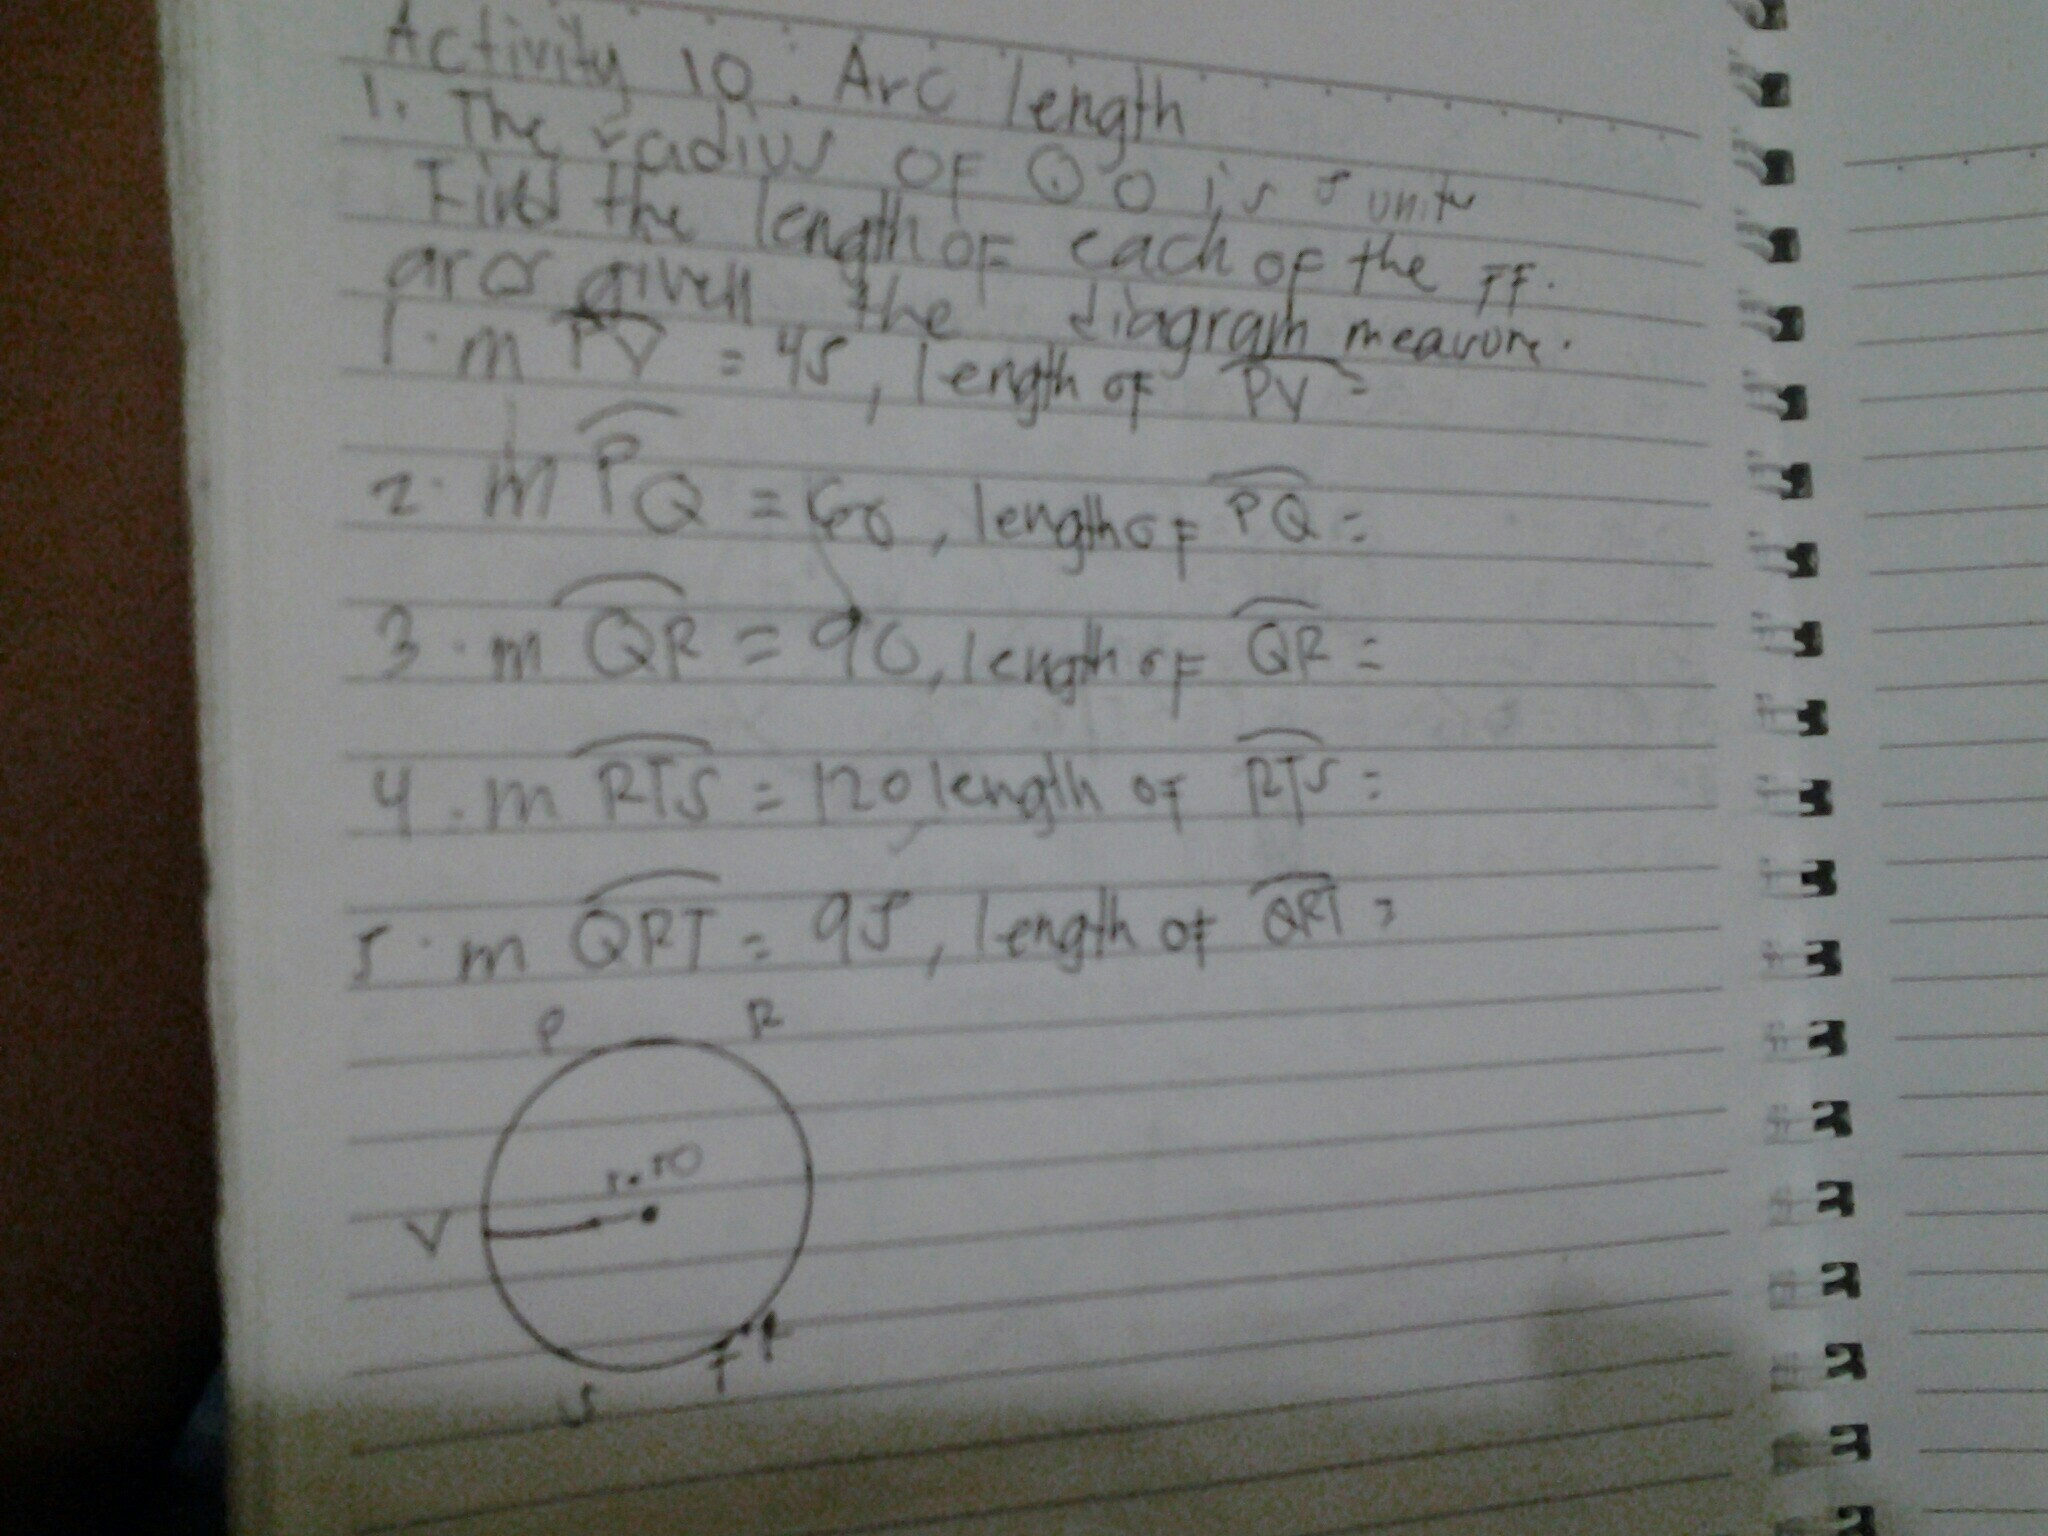 Activity 10. Arc length
1. The radius OF ⊙ O is 5 units
Find the length OF each of the FF.
given the diagram measure.
1. m PV = 45, length of PV =
2. m PQ = 60, length of PQ =
3. m QR = 90, length of QR =
4. m RTS = 120 length of RTS =
5. m QRT = 95, length of QRT =
P R
V
S T